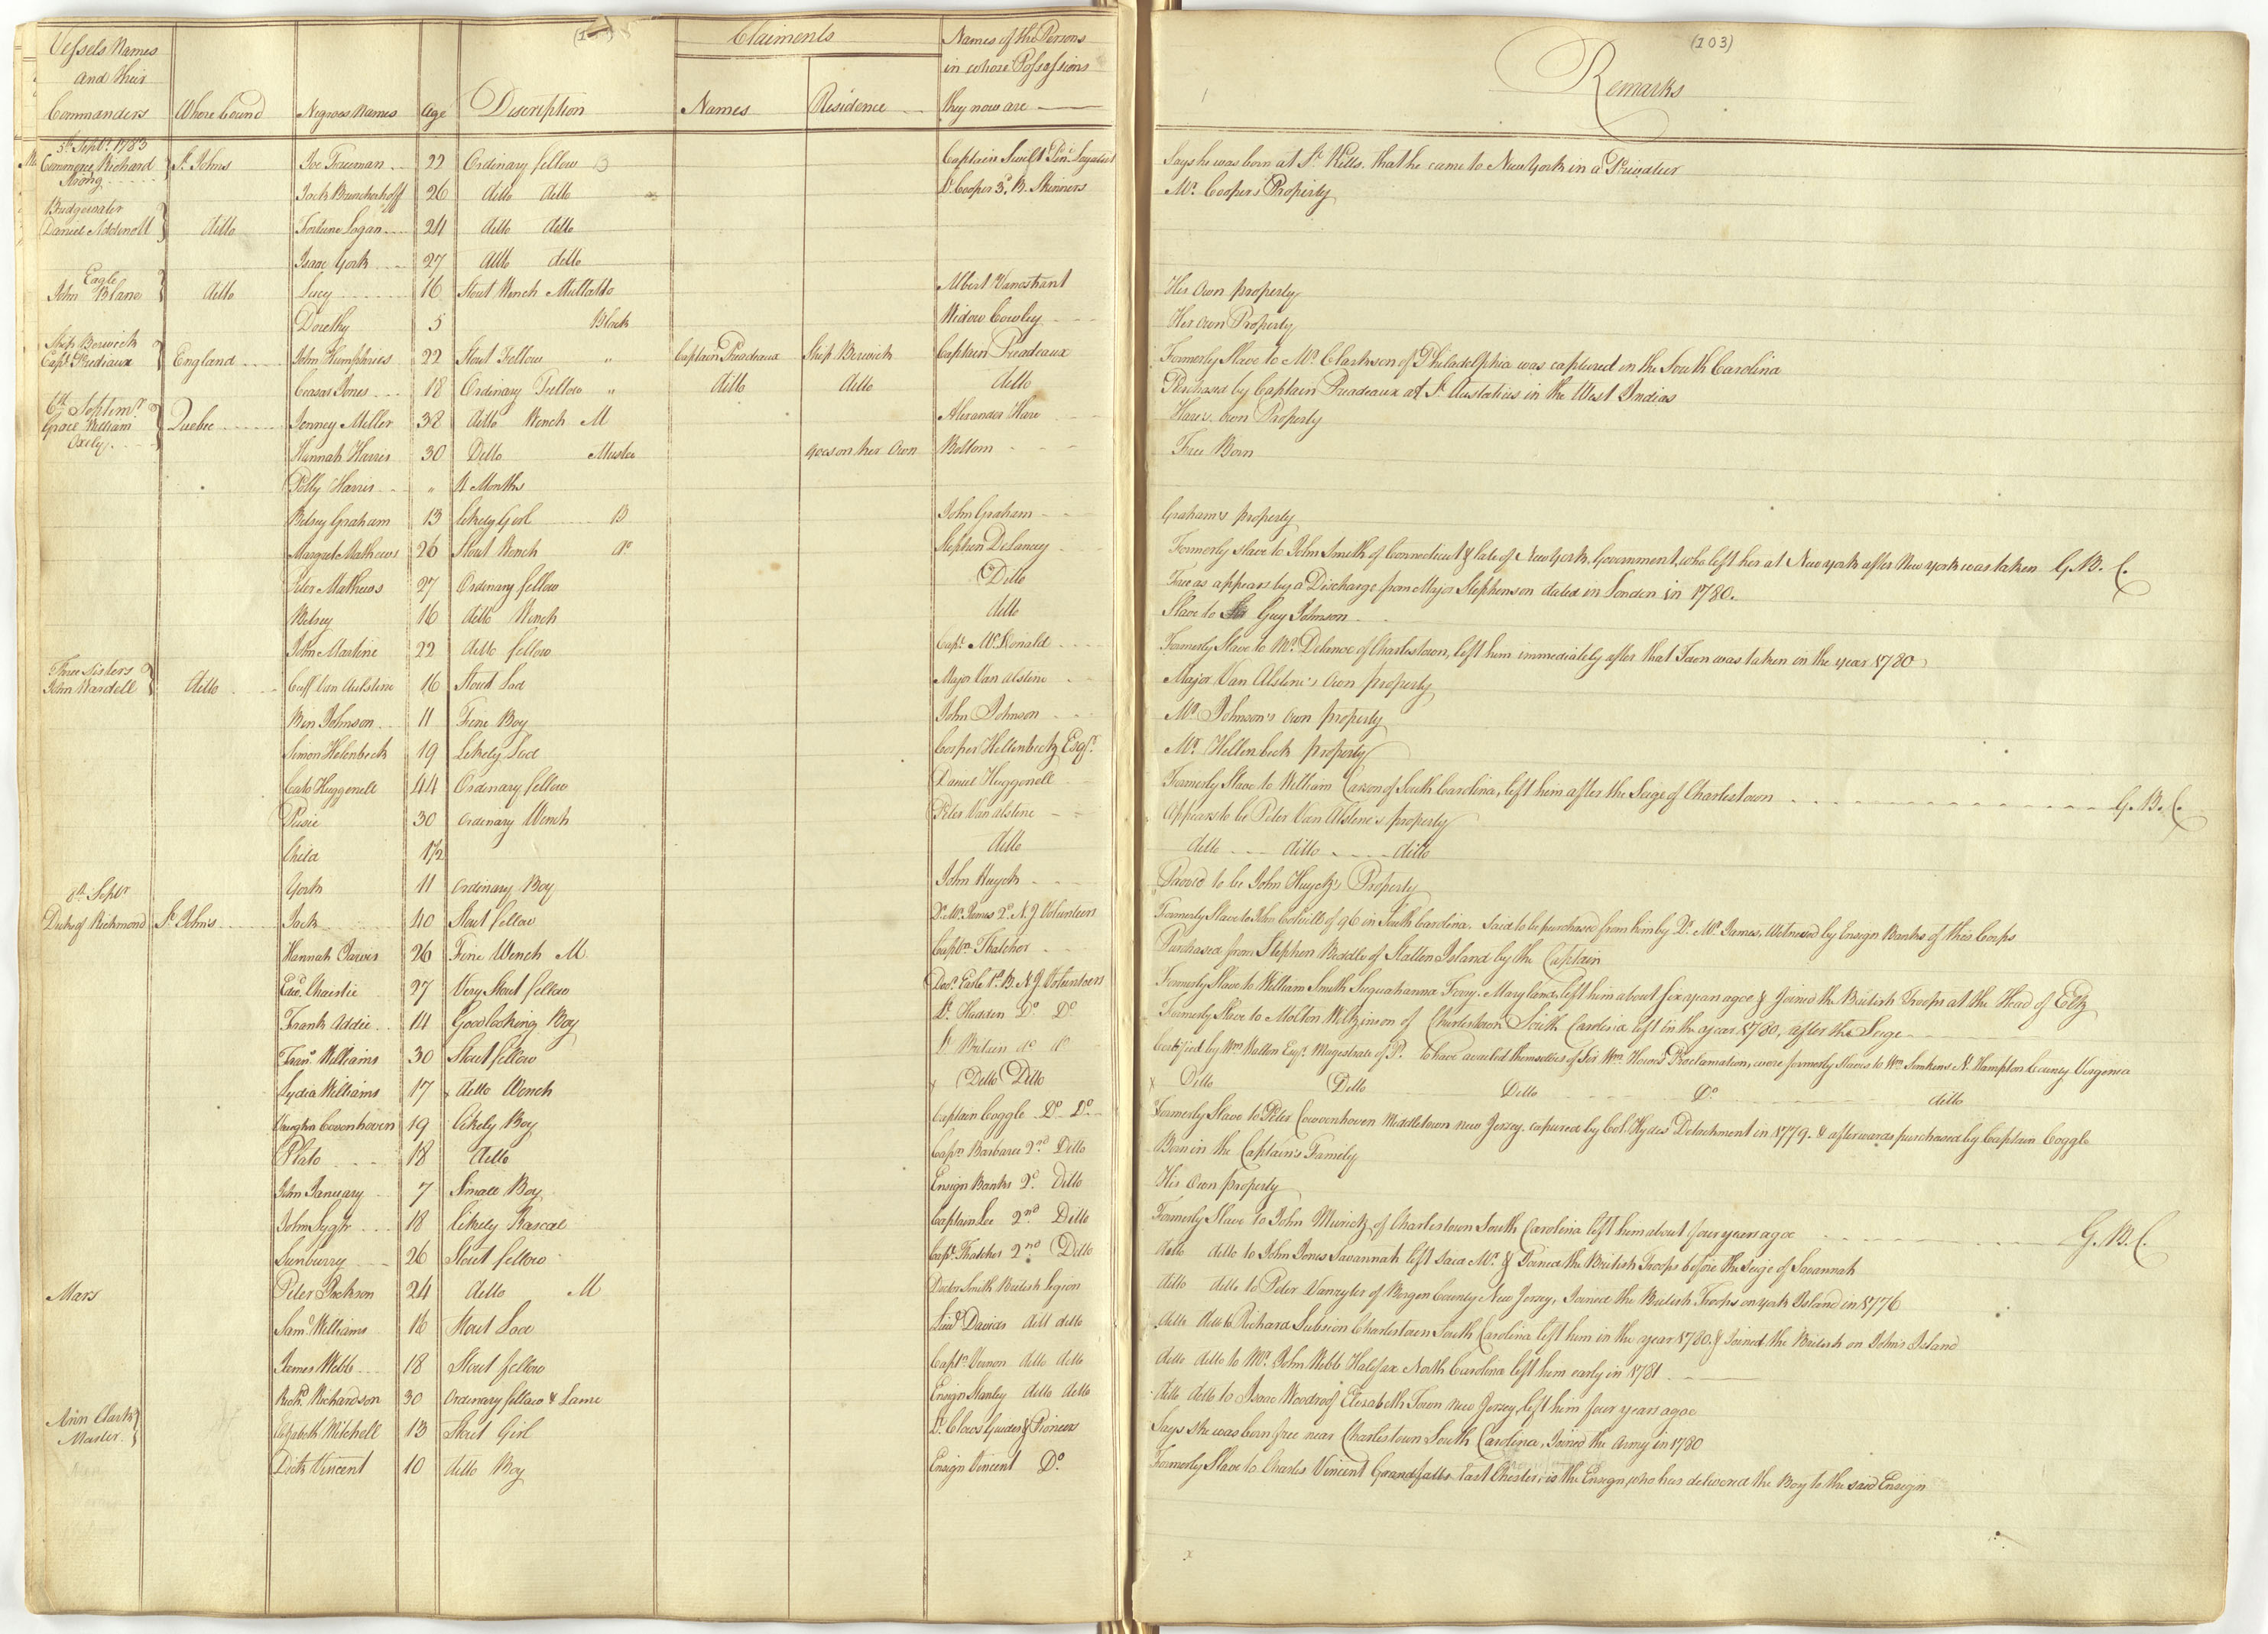 (103)
Remarks
Claiments
Vessels Names and their Commanders Where bound Negroes Names Age Discription Names Residence Names of the Persons in whose Possessions they now are
5th Septr. 1783
Commerce Richard Strong St. Johns Joe Freeman 22 Ordinary fellow B Captain Swift Loyalist Says he was born at St. Kitts. that he came to New York in a Privateer
Jack Bunckerhoff 26 ditto ditto Lt. Cooper 3d. B. Skinners Mr. Coopers Property
Bridgewater Daniel Addinott ditto Fortune Logan 24 ditto ditto
Isaac York 27 ditto ditto
Eagle John Blane ditto Lucy 16 Stout Wench Mullatto Albert Vanostrant His Own property
Dorethy 5 Black Widow Cowley Her own Property
Ship Berwick Capt. Preadeaux England John Humphries 22 Stout Fellow " Captain Preadeaux Ship Berwick Captain Preadeaux Formerly Slave to Mr. Clarkson of Philadelphia was captured in the South Carolina
Ceasar Jones 18 Ordinary Fellow " ditto ditto ditto Purchased by Captain Preadeaux at St. Austatius in the West Indias
6th Septemr.
Grace William Oxley Quebec Jenney Miller 38 ditto Wench M Alexander Hare Hare's own Property
Hannah Harris 30 Ditto Mustee goes on her Own Bottom Free Born
Polly Harris " 11 Months
Betsey Graham 13 likely Girl B John Graham Graham's property
Margret Mathews 26 Stout Wench do Stephen DeLancey Formerly slave to John Smith of Connecticut & late of New York Government, who left her at New york after New york was taken G.B.C.
Peter Mathews 27 Ordinary fellow Ditto Free as appears by a Discharge from Major Stephenson dated in London in 1780.
Betsey 16 ditto Wench ditto Slave to Guy Johnson
John Martine 22 ditto fellow Capt. McDonald Formerly Slave to Mr. Delanoe of Charlestown, left him immediately after that Town was taken in the year 1780
Three Sisters John Wardell ditto Cuff Van Aulstine 16 Stout Lad Major Van alstine Major Van Alstine's own property
Ben Johnson 11 Fine Boy John Johnson Mr. Johnson's own property
Simon Helenbeck 19 Likely Lad Casper Hellenbeck Esqr. Mr. Hellenbeck property
Cato Huggenell 44 Ordinary fellow Daniel Huggenell Formerly Slave to William Carson of South Carolina, left him after the Seige of Charlestown G.B.C.
Susie 30 ordinary Wench Peter Van alstine Appears to be Peter Van Alstine's property
Child 1½ ditto ditto ditto ditto
York 11 ordinary Boy John Huyck Proved to be John Huyck's Property
8th Septr
Duke of Richmond St. John's Jack 40 Stout fellow Dr. Wm. James 2d. N.J Volunteers Formerly Slave to John Colvill of 96 in South Carolina. Said to be purchased from him by Dr. Wm. James, Witnessed by Ensign Banks of this Corps
Hannah Jarvis 26 Fine Wench M Captn. Thatcher Purchased from Stephen Biddle of Statten Island by the Captain
Edwd. Chairlie 27 Very Stout fellow Doctr. Earle 1st. B. N.J Volunteers Formerly Slave to William Smith Susquahanna Ferry Maryland, left him about six years agoe & joined the British Troops at the Head of Elk
Frank Addie 14 Good looking Boy Lt. Hadden Do Do Formerly Slave to Molton Wilkinson of Charlestown South Carolina left in the year 1780, after the Seige
Frans. Williams 30 Stout fellow Lt. Britain do do Certified by Wm. Walton Esqr. Magestrate of P. to have availed themselves of Sir Wm. Howes Proclamation, were formerly slaves to Wm. Simkins N. Hampton County Virginia
Lydia Williams 17 ditto Wench Ditto Ditto Ditto Ditto Ditto Do ditto
Vaughn Covenhoven 19 likely Boy Captain Coggle Do Do Formerly Slave to Peter Cowvenhoven Middletown new Jersey. capured by Col. Hydes Detachment in 1779. & afterwards purchased by Captain Coggle
Plato 18 ditto Captn Barbarie 2nd. Ditto Born in the Captain's Family
John January 7 Small Boy Ensign Banks 2d. Ditto His Own property
John Sygh 18 likely Rascal Captain Lee 2nd Ditto Formerly Slave to John Mirick of Charlestown South Carolina left him about four years agoe G.B.C.
Sunburry 26 Stout fellow Capt. Thatcher 2nd Ditto ditto ditto to John Jones Savannah left said Mr. & Joined the British Troops before the Seige of Savannah
Mars Peter Jackson 24 ditto M Doctor Smith British legion ditto ditto to Peter Vanryler of Bergen County New Jersey, Joined the British Troops on york Island in 1776
Saml. Williams 16 Stout Lad Lieut Davids ditt ditto ditto ditto Richard Subsion Charlestown South Carolina left him in the year 1780. & Joined the British on John's Island
James Webb 18 Stout fellow Captn. Vernon ditto ditto ditto ditto to Mr. John Webb Halifax North Carolina left him early in 1781
Richd. Richardson 30 Ordinary fellow & Lame Ensign Stanley ditto ditto ditto ditto to Isaac Woodrof Elizabeth Town new Jersey, left him four years agoe
Ann Clark Master Elizabeth Mitchell 13 Stout Girl Lt. Clows Guides & Pioneers Says she was born free near Charlestown South Carolina, Joined the Army in 1780
Dick Vincent 10 ditto Boy Ensign Vincent Do. Formerly Slave to Charles Vincent East Chester is the Ensign, who has delivered the Boy to the said Ensign